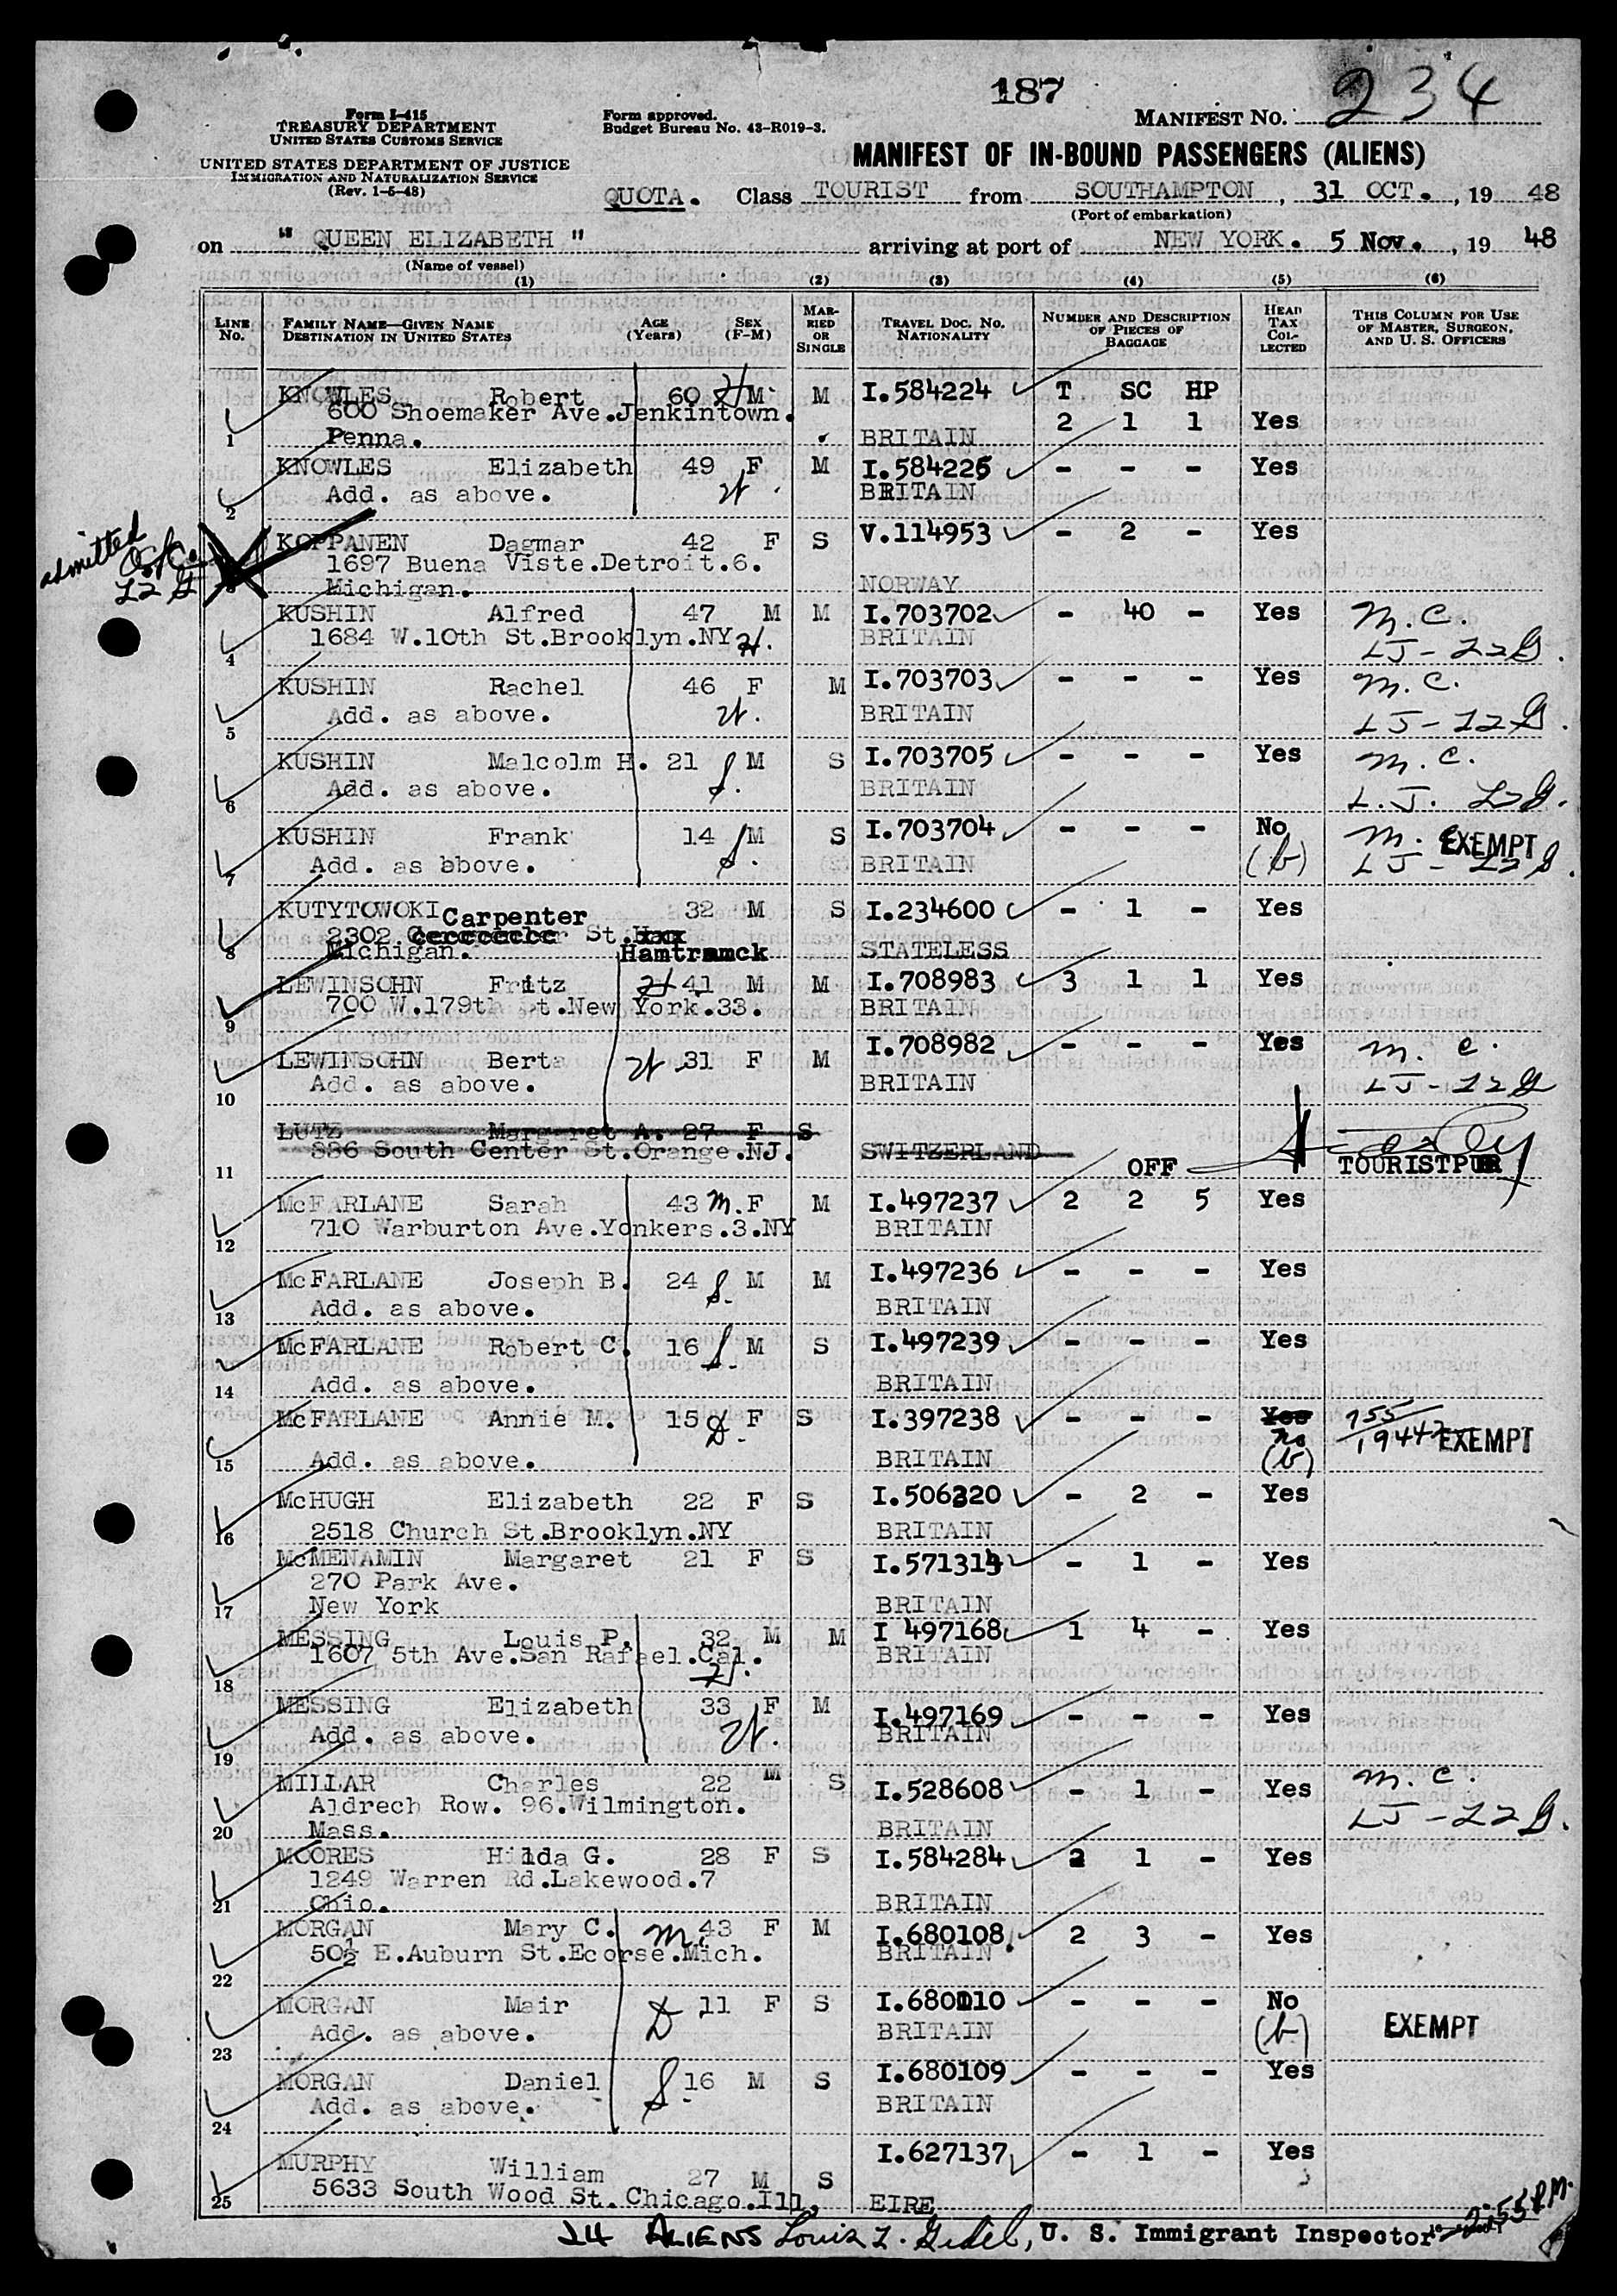 187
MANIFEST NO. 234
Form I-415
TREASURY DEPARTMENT
UNITED STATES CUSTOMS SERVICE
UNITED STATES DEPARTMENT OF JUSTICE
IMMIGRATION AND NATURALIZATION SERVICE
(Rev. 1-6-48)
Form approved.
Budget Bureau No. 43-R019-3.
MANIFEST OF IN-BOUND PASSENGERS (ALIENS)
QUOTA. Class TOURIST from SOUTHAMPTON, 31 OCT., 19 48
(Port of embarkation)
on " QUEEN ELIZABETH " arriving at port of NEW YORK. 5 Nov., 19 48
(Name of vessel)
(1) (2) (3) (4) (5) (6)
LINE No. FAMILY NAME—GIVEN NAME DESTINATION IN UNITED STATES AGE (Years) SEX (F-M) MARRIED OR SINGLE TRAVEL DOC. No. NATIONALITY NUMBER AND DESCRIPTION OF PIECES OF BAGGAGE HEAD TAX COLLECTED THIS COLUMN FOR USE OF MASTER, SURGEON, AND U. S. OFFICERS
KNOWLES Robert 60 H M M I.584224 T SC HP
600 Shoemaker Ave.Jenkintown. 2 1 1 Yes
1 Penna. BRITAIN
KNOWLES Elizabeth 49 F M I.584225 - - - Yes
2 Add. as above. W. BRITAIN
admitted O.K. L2 G
KOPPANEN Dagmar 42 F S V.114953 - 2 - Yes
1697 Buena Viste.Detroit.6.
3 Michigan. NORWAY
KUSHIN Alfred 47 M M I.703702 - 40 - Yes M.C.
4 1684 W.10th St.Brooklyn.NY H. BRITAIN LJ-22G.
KUSHIN Rachel 46 F M I.703703 - - - Yes M.C.
5 Add. as above. W. BRITAIN LJ-22G.
KUSHIN Malcolm H. 21 S. M S I.703705 - - - Yes M.C.
6 Add. as above. BRITAIN L.J. 22G.
KUSHIN Frank 14 S. M S I.703704 - - - No M.C. EXEMPT
7 Add. as bbove. BRITAIN (b) LJ-22G.
KUTYTOWOKI 32 M S I.234600 - 1 - Yes
Carpenter
2302 St.
8 Michigan. Hamtramck STATELESS
LEWINSOHN Fritz H 41 M M I.708983 3 1 1 Yes
9 700 W.179th St.New York.33. BRITAIN
LEWINSOHN Berta W 31 F M I.708982 - - - Yes M.C.
10 Add. as above. BRITAIN LJ-22G
LUTZ Margaret A. 27 F S
886 South Center St.Orange.NJ. SWITZERLAND
11 OFF TOURISTPUR
McFARLANE Sarah 43 M. F M I.497237 2 2 5 Yes
12 710 Warburton Ave.Yonkers.3.NY BRITAIN
McFARLANE Joseph B. 24 S. M M I.497236 - - - Yes
13 Add. as above. BRITAIN
McFARLANE Robert C. 16 S. M S I.497239 - - - Yes
14 Add. as above. BRITAIN
McFARLANE Annie M. 15 D. F S I.397238 - - - Yes no (b) EXEMPT
15 Add. as above. BRITAIN
McHUGH Elizabeth 22 F S I.506320 - 2 - Yes
16 2518 Church St.Brooklyn.NY BRITAIN
McMENAMIN Margaret 21 F S I.571314 - 1 - Yes
270 Park Ave.
17 New York BRITAIN
MESSING Louis P. 32 M M I 497168 1 4 - Yes
18 1607 5th Ave.San Rafael.Cal. H. BRITAIN
MESSING Elizabeth 33 F M I.497169 - - - Yes
19 Add. as above. W. BRITAIN
MILLAR Charles 22 M S I.528608 - 1 - Yes M.C.
Aldrech Row. 96.Wilmington. LJ-22G.
20 Mass. BRITAIN
MOORES Hilda G. 28 F S I.584284 2 1 - Yes
1249 Warren Rd.Lakewood.7
21 Ohio. BRITAIN
MORGAN Mary C. M. 43 F M I.680108. 2 3 - Yes
22 50½ E.Auburn St.Ecorse.Mich. BRITAIN
MORGAN Mair D 11 F S I.680110 - - - No
23 Add. as above. BRITAIN (b) EXEMPT
MORGAN Daniel S. 16 M S I.680109 - - - Yes
24 Add. as above. BRITAIN
MURPHY William 27 M S I.627137 - 1 - Yes
25 5633 South Wood St.Chicago.Ill. EIRE
24 ALIENS Louis Z. Gedel, U. S. Immigrant Inspector 2:55 P.M.